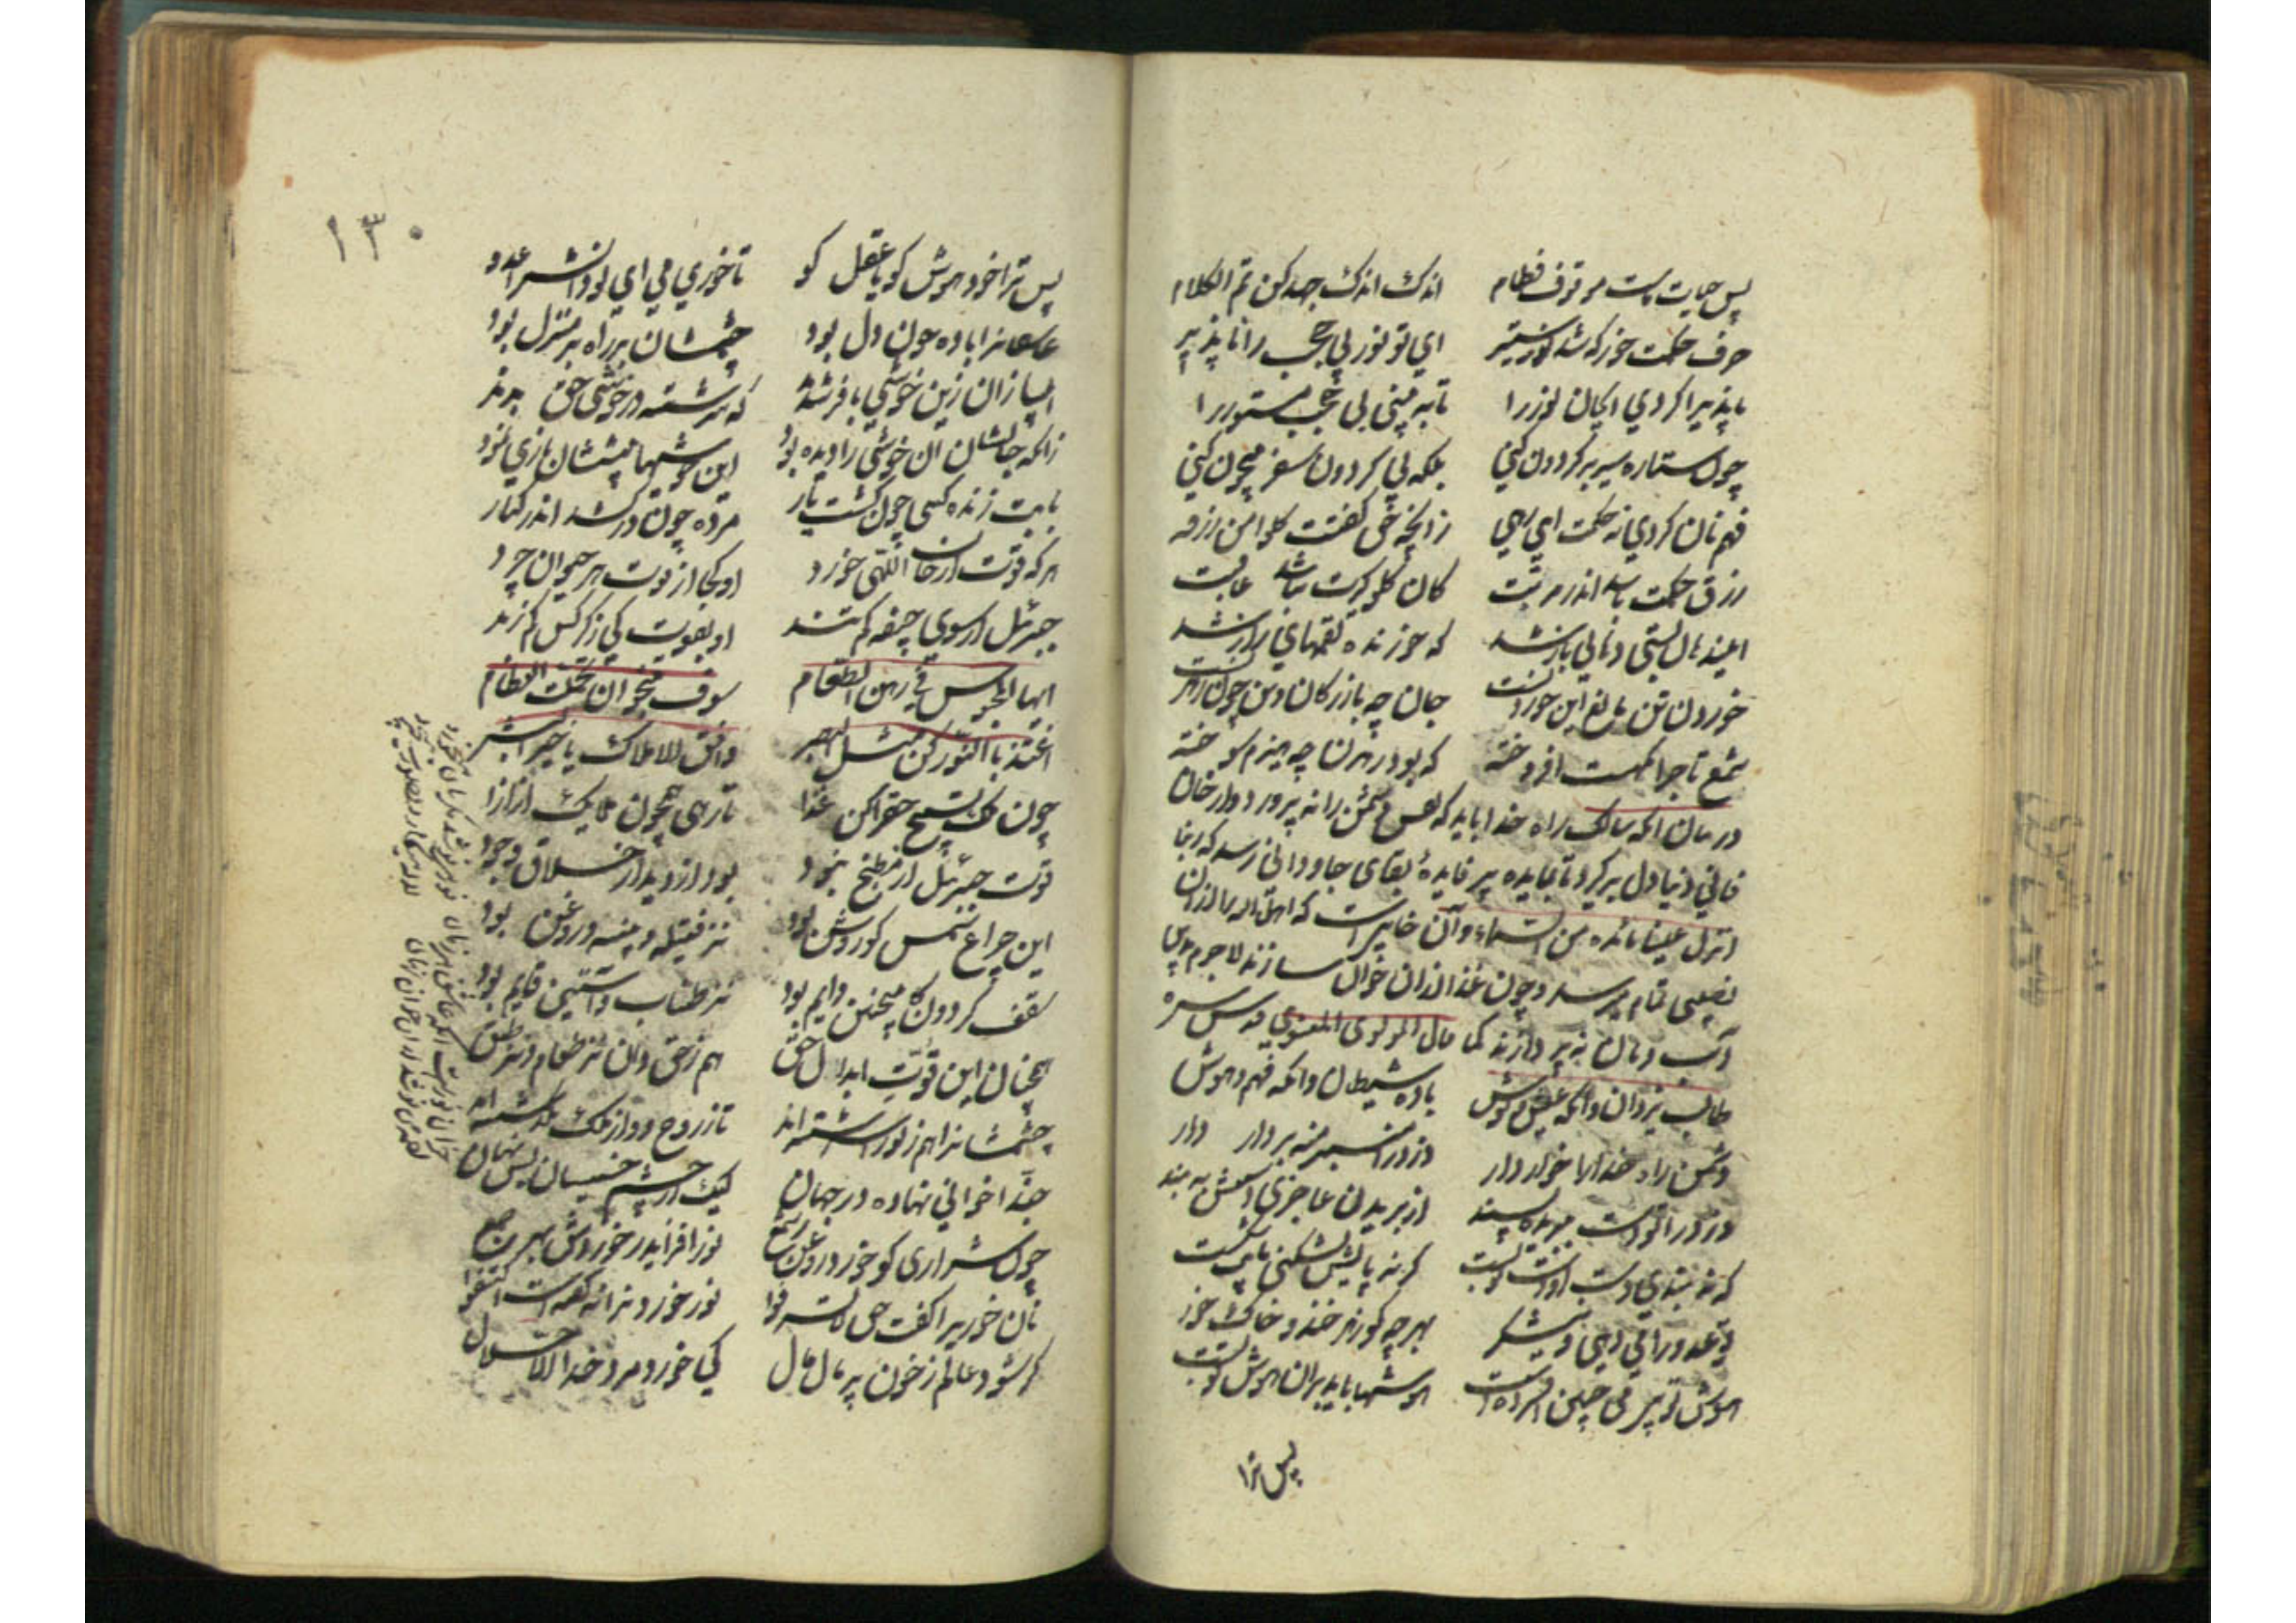 پس حیات ماست موقوف فطام اندک اندک جهد کن تم الکلام
حرف حکمت خور که شد نور ستیر ای تو نور بی حجب را ناپذیر
تا پذیرا کردی ای جان نور را تا به بینی بی حجب مستور را
چون ستاره سیر بر کردون کنی بلکه بی کردون سفر بیچون کنی
فهم نان کردی نه حکمت ای رهی زانچه حق کفتت کلوا من رزقه
رزق حکمت به اندر مرتبت کان کلو کیرت نباشد عاقبت
این دهان بستی دهانی باز شد که خورنده لقمهای راز شد
خوردن تن مانع این خوردنست جان چه بازرکان و تن چون رهزنست
شمع تاجر آنکهست افروخته که بود رهزن چه هیزم سوخته
در بیان آنکه سالک راه خدا باید که نفس دشمن را نه پرورد و از خان
فانی دنیا دل برکیرد تا بمایده پر فایدهٔ بقای جاودانی رسد که ربنا
انزل علینا مائده من السماء و آن خانیست که اهل اله را از آن
نصیبی تمام میرسد و چون غذا از آن خوان سازند لاجرم سوی
آب و نان نه پردازند کما قال المولوی المعنوی قدس سره
طالب یزدان و آنکه عیش و نوش باده شیطان و آنکه فهم و هوش
دشمن راه خدا را خوار دار دزد را منبر منه بر دار دار
دزد را تو دست ببریدن پسند از بریدن عاجزی دستش به بند
کر نه بندی دست او دست تو بست کر نه پایش بشکنی پایت شکست
تو عدو را می دهی و نیشکر بهر چه کو زهر خند و خاک خور
هوش تو بی می چنین افسرده است هوشها باید بران هوش تو بست
پس ترا
۱۳۰
پس ترا خود هوش کو یا عقل کو تا خوری می ای تو دانش را عدو
عاشقانرا باده خون دل بود چشمشان بر راه بر منزل بود
انبیا زان زین خوشی بافر شدند که سرشته در خوشی حق بدند
زانکه جانشان آن خوشی را دیده بود این خوشیها پیششان بازی نمود
با بت زنده کسی چون کشت یار مرده چون در کشد اندر کنار
هر که قوت از خان اللهی خورد او کجا از قوت هر حیوان چرد
جبرئیل از سوی جیفه کم تند او بقوت کی ز کرکس کم زند
ایها المحبوس فی رهن الطعام سوف تنجو ان تحملت الفطام
اغتذ بالنور کن مثل البصر وافق الاملاک یا خیر البشر
چون ملک تسبیح حق را کن غذا تا رهی همچون ملایک از اذا
قوت جبرئیل از مطبخ نبود بود از دیدار خلاق وجود
این چراغ شمس کو روشن بود نز فتیله و پنبه و روغن بود
سقف کردون کاینچنین دایم بود نز طناب و استنی قایم بود
همچنان این قوت ابدال حق هم ز حق دان نز طعام و نز طبق
جسمشانرا هم ز نور اسرشته اند تا ز روح و از ملک بکذشته اند
حبذا خوانی نهاده در جهان لیک از چشم خسیسان بس نهان
چون شراری کو خورد روغن ز شمع نور افزاید ز خوردش بهر جمع
نان خوریرا کفت حق لا تسرفوا نور خوردنرا نکفتست اکتفوا
کر شود عالم ز خون پر مال مال کی خورد مرد خدا الا حلال